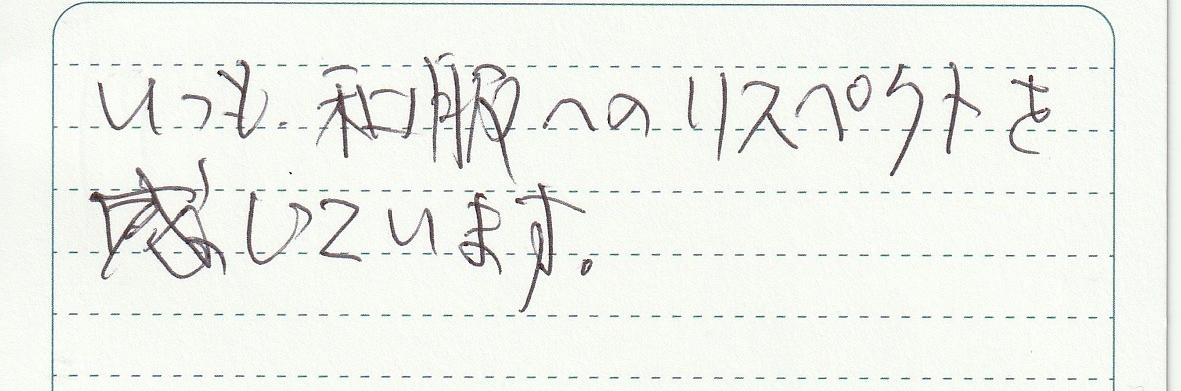 いつも、和服へのリスペクトを
感じています。